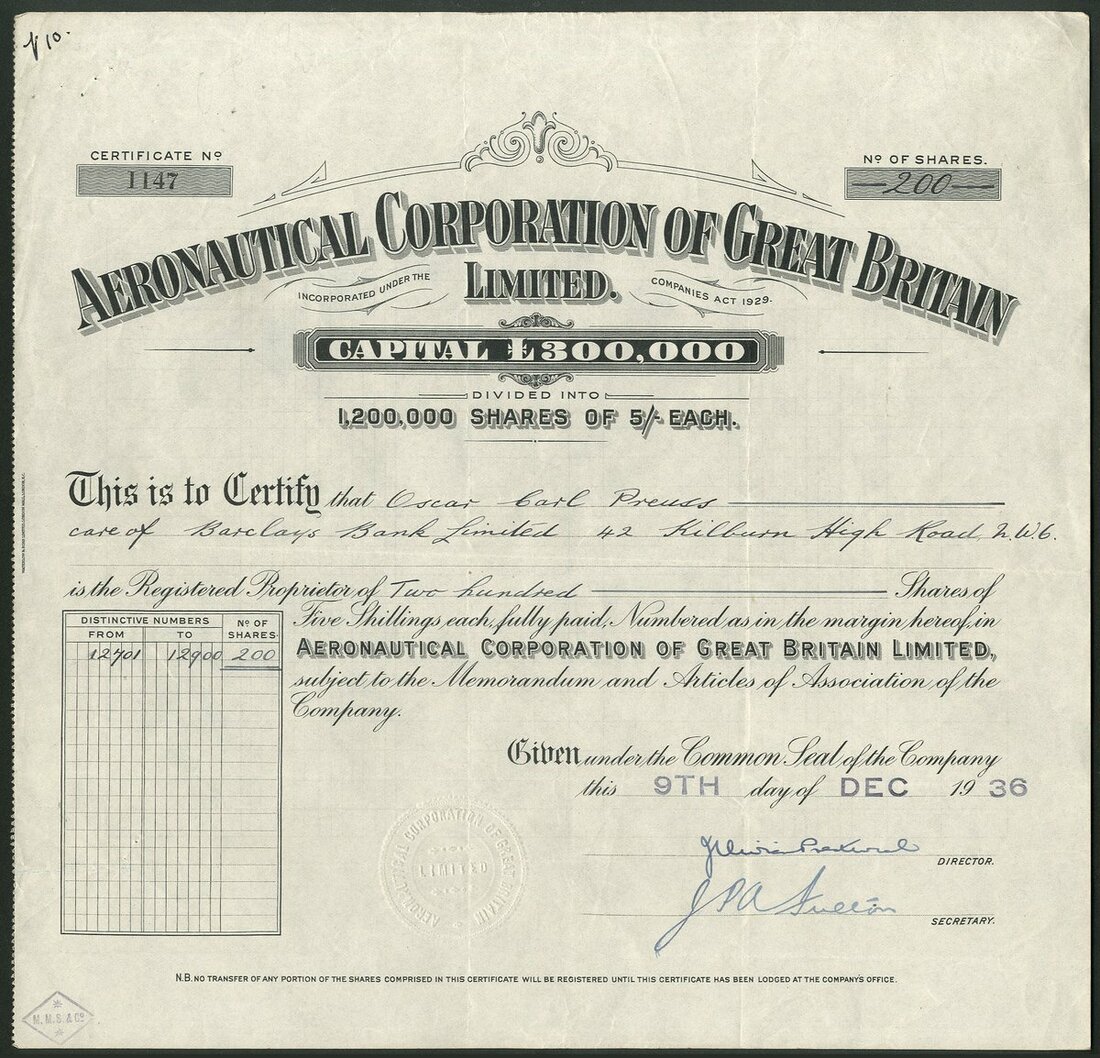 £10.
CERTIFICATE Nº
1147
Nº OF SHARES.
200
AERONAUTICAL CORPORATION OF GREAT BRITAIN
LIMITED.
INCORPORATED UNDER THE
COMPANIES ACT 1929.
CAPITAL £300,000
DIVIDED INTO
1,200,000 SHARES OF 5/- EACH.
This is to Certify that Oscar Carl Preuss
care of Barclays Bank Limited 42 Kilburn High Road, N.W.6.
is the Registered Proprietor of Two hundred Shares of
Five Shillings each, fully paid, Numbered as in the margin hereof, in
AERONAUTICAL CORPORATION OF GREAT BRITAIN LIMITED,
subject to the Memorandum and Articles of Association of the
Company.
DISTINCTIVE NUMBERS
FROM TO
Nº OF SHARES
12701 12900 200
Given under the Common Seal of the Company
this 9TH day of DEC 19 36
AERONAUTICAL CORPORATION OF GREAT BRITAIN
LIMITED
DIRECTOR.
J P A
SECRETARY.
N.B. NO TRANSFER OF ANY PORTION OF THE SHARES COMPRISED IN THIS CERTIFICATE WILL BE REGISTERED UNTIL THIS CERTIFICATE HAS BEEN LODGED AT THE COMPANY'S OFFICE.
M. M. S. & Co